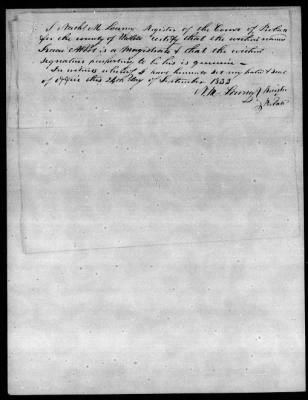 I Nathl M. Lowney Register of the Court of Probate
for the county of Waldo certify that the within named
Isaac Abbot is a Magistrate & that the within
signature purporting to be his is genuine —
In witness whereof I have hereunto set my hand & seal
of Office this 26th day of September 1833
N. M. Lowney Register
Probate